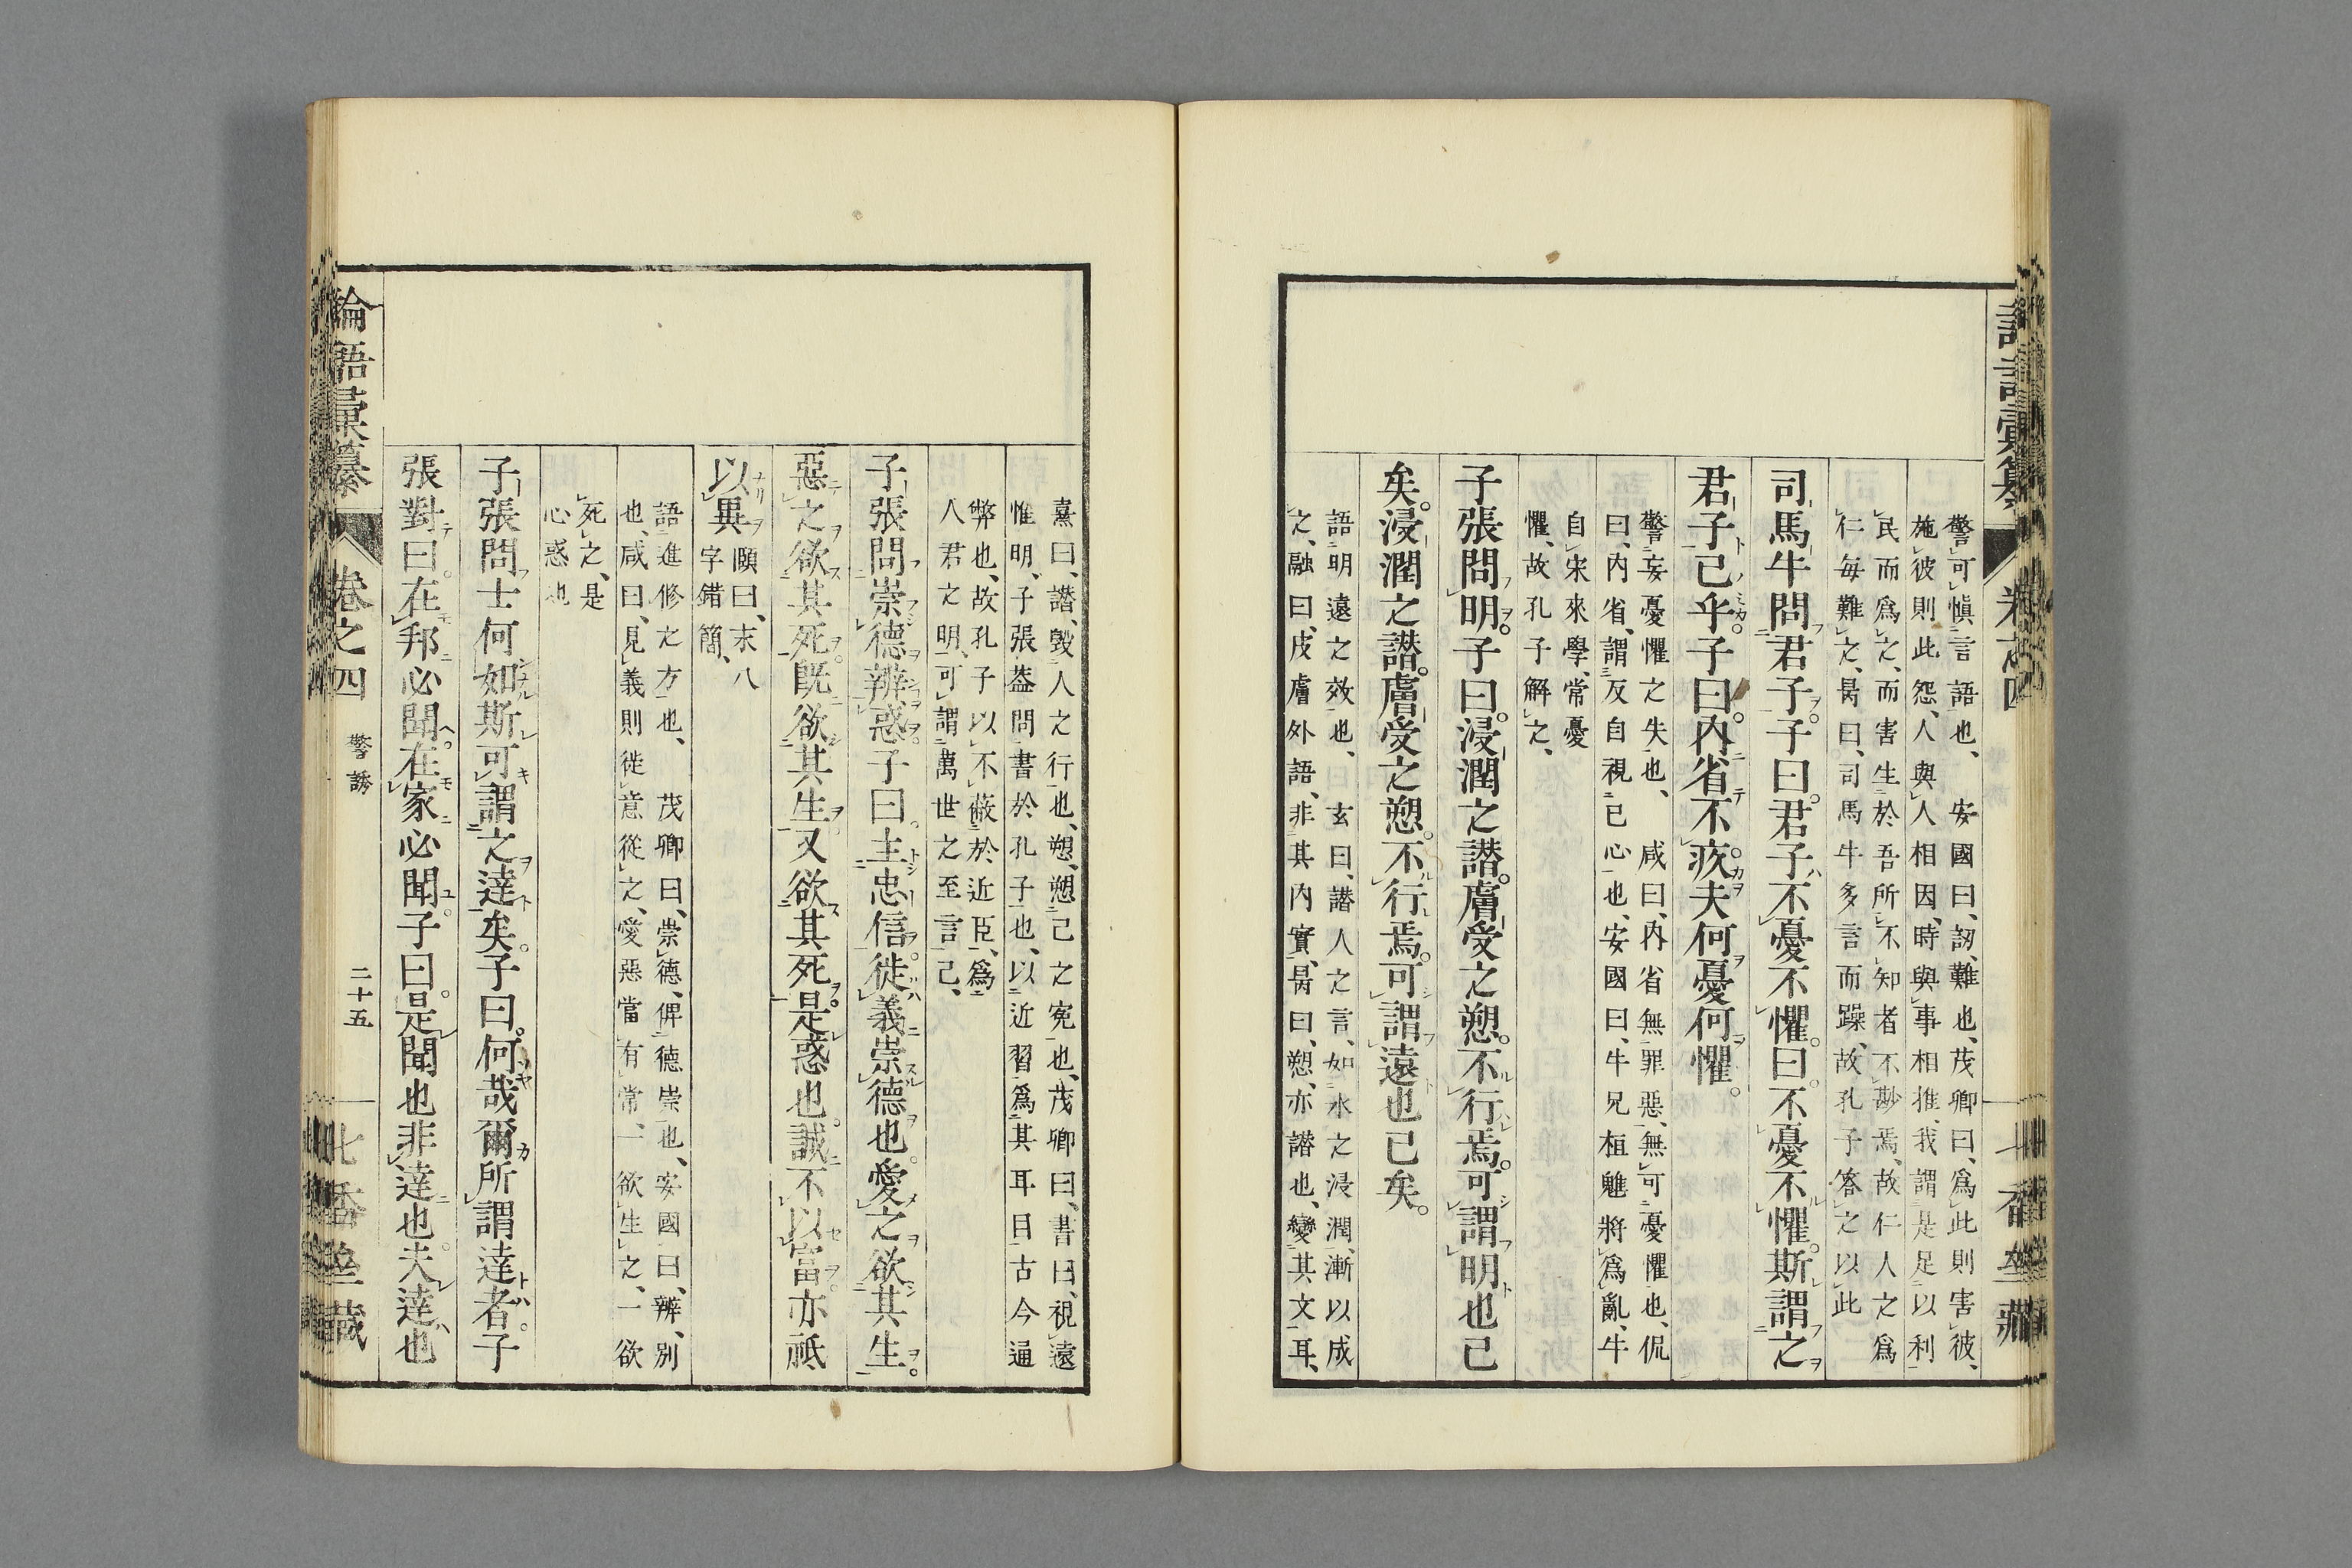 警可愼言語也、 安國曰、訒、難也、茂卿曰、爲此則害彼、
施彼則此怨、人與人相因、時與事相推、我謂是足以利
民而爲之、而害生於吾所不知者、不尠焉、故仁人之爲
仁毎難之、昺曰、司馬牛多言而躁、故孔子答之以此
司馬牛問君子。子曰。君子不憂不懼。曰。不憂不懼。斯謂之
君子已乎。子曰。内省不疚。夫何憂何懼。
警妄憂懼之失也、 咸曰、内省無罪惡、無可憂懼也、侃
曰、内省、謂反自視己心也、安國曰、牛兄桓魋將爲亂、牛
自宋來學、常憂
懼、故孔子解之、
子張問明。子曰。浸潤之譖。膚受之愬。不行焉。可謂明也已
矣。浸潤之譖。膚受之愬。不行焉。可謂遠也已矣。
語明遠之效也、 玄曰、譖人之言、如水之浸潤、漸以成
之、融曰、皮膚外語、非其内實、昺曰、愬、亦譖也、變其文耳、
熹曰、譖、毀人之行也、愬、愬己之寃也、茂卿曰、書曰、視遠
惟明、子張葢問書於孔子也、以近習爲其耳目古今通
弊也、故孔子以不蔽於近臣、爲
人君之明、可謂萬世之至言已、
子張問崇德辨惑。子曰。主忠信。徙義。崇德也。愛之欲其生。
惡之欲其死。既欲其生。又欲其死。是惑也。誠不以富。亦祗
以異 頤曰、末八
字錯簡、
語進修之方也、 茂卿曰、崇德、俾德崇也、安國曰、辨、別
也、咸曰、見義則徙意從之、愛惡當有常、一欲生之、一欲
死之、是
心惑也
子張問士何如斯可謂之達矣。子曰。何哉爾所謂達者。子
張對曰。在邦必聞。在家必聞。子曰。是聞也非達也。夫達也
論語彙纂 卷之四 警誘 二十五